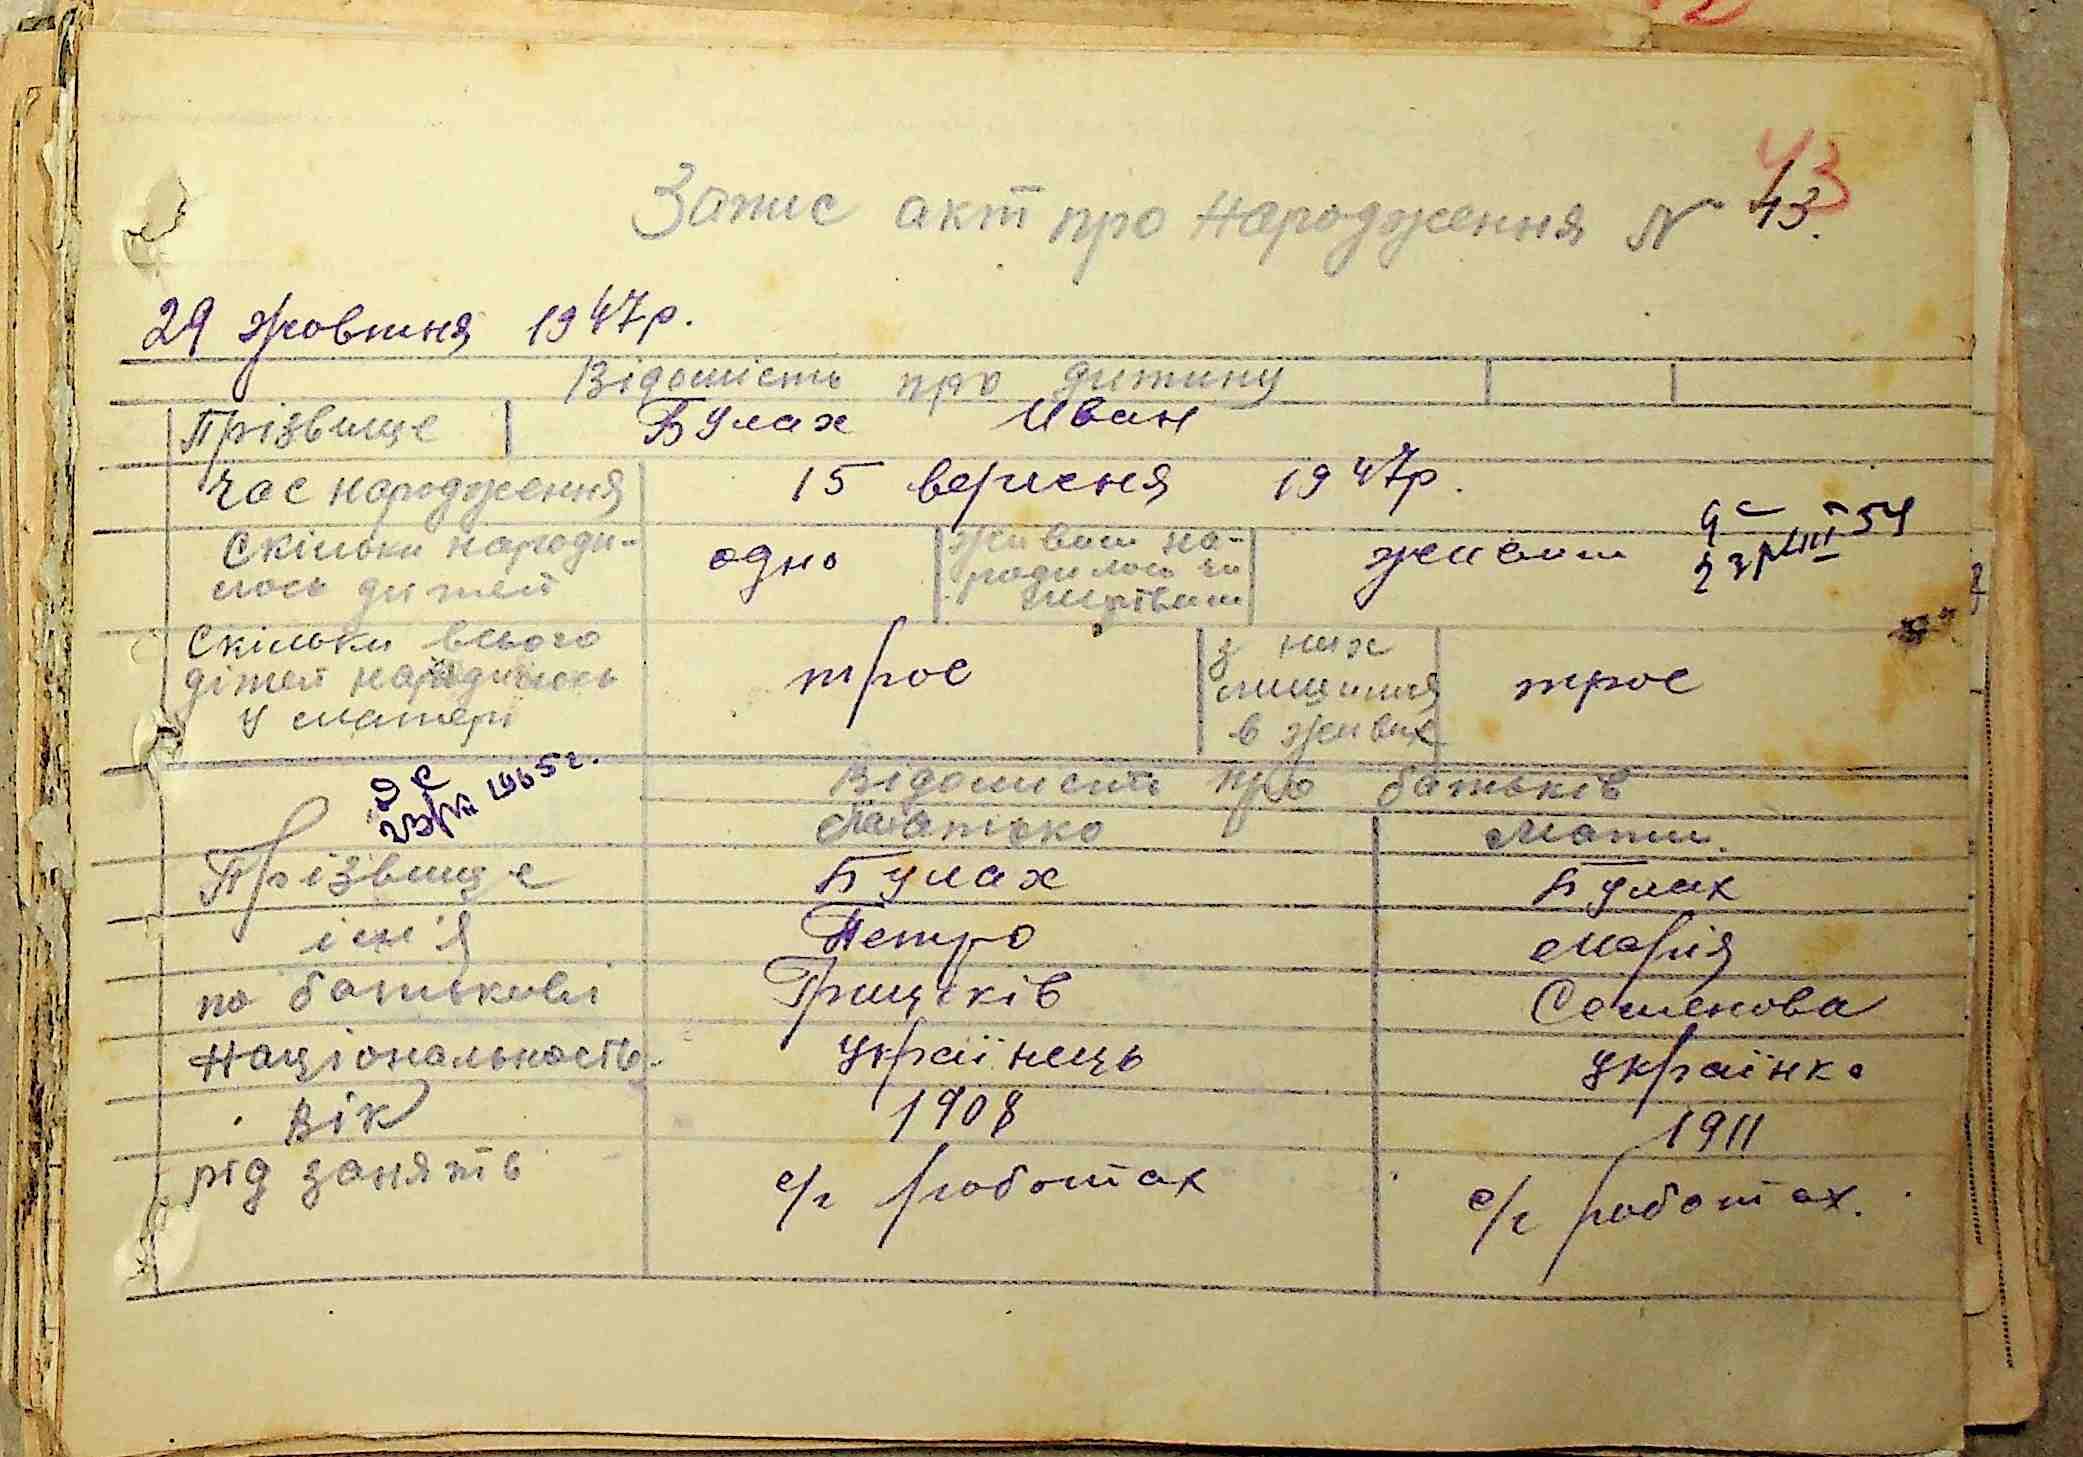 43
Запис акт про народження N 43.
29 жовтня 1947р.
Відомість про дитину
Прізвище Булах Иван
Час народження 15 вересня 1947р.
Скільки народи-
лось дитей
одно
Живим на-
родилось чи
мертвим
живим
Скільки всього
дітей народилось
у матері
троє
з них
лишилися
в живих
троє
1965г.
Відомисть про батьків
Батько Мати.
Прізвище Булах Булах
ім'я Петро Марія
по батькові Грицьків Семенова
Національность. Українець Українка
Вік 1908 1911
рід занять с/г роботах с/г роботах.